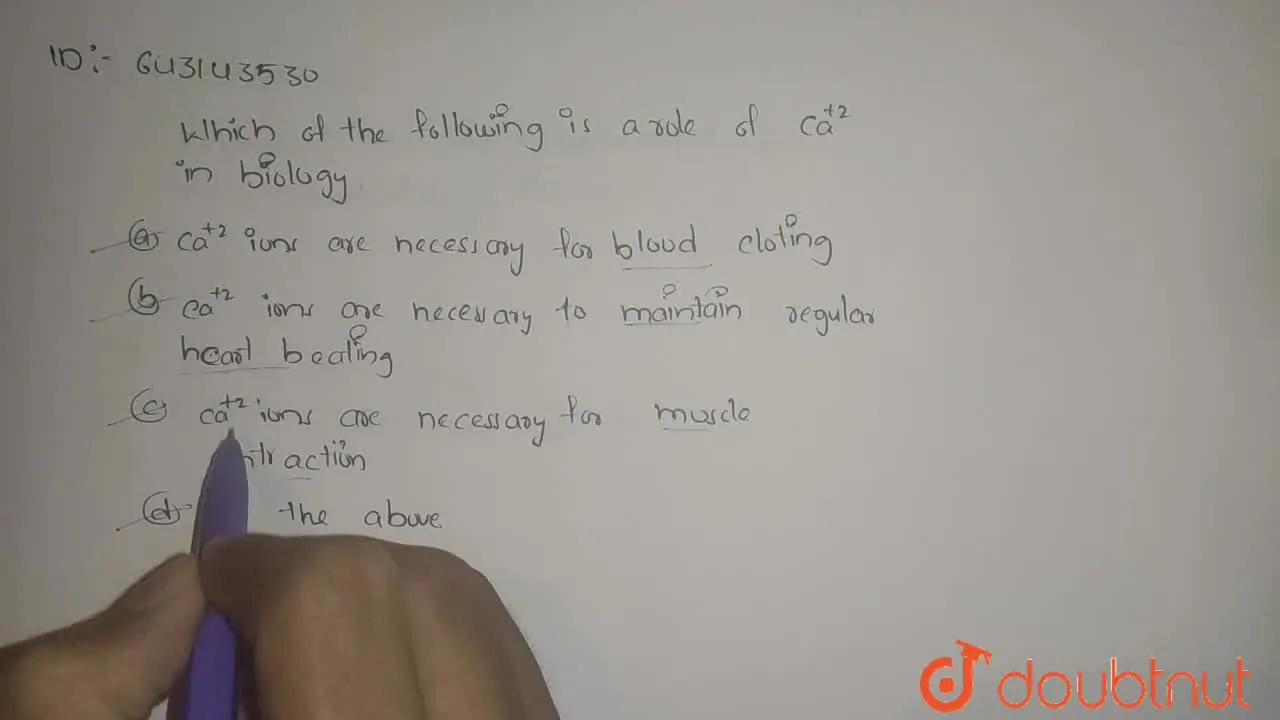 ID:- 643143530
Which of the following is a role of Ca+2
in biology
(a) Ca+2 ions are necessary for blood cloting
(b) Ca+2 ions are necessary to maintain regular
heart beating
(c) Ca+2 ions are necessary for muscle
ntraction
(d) the above
doubtnut